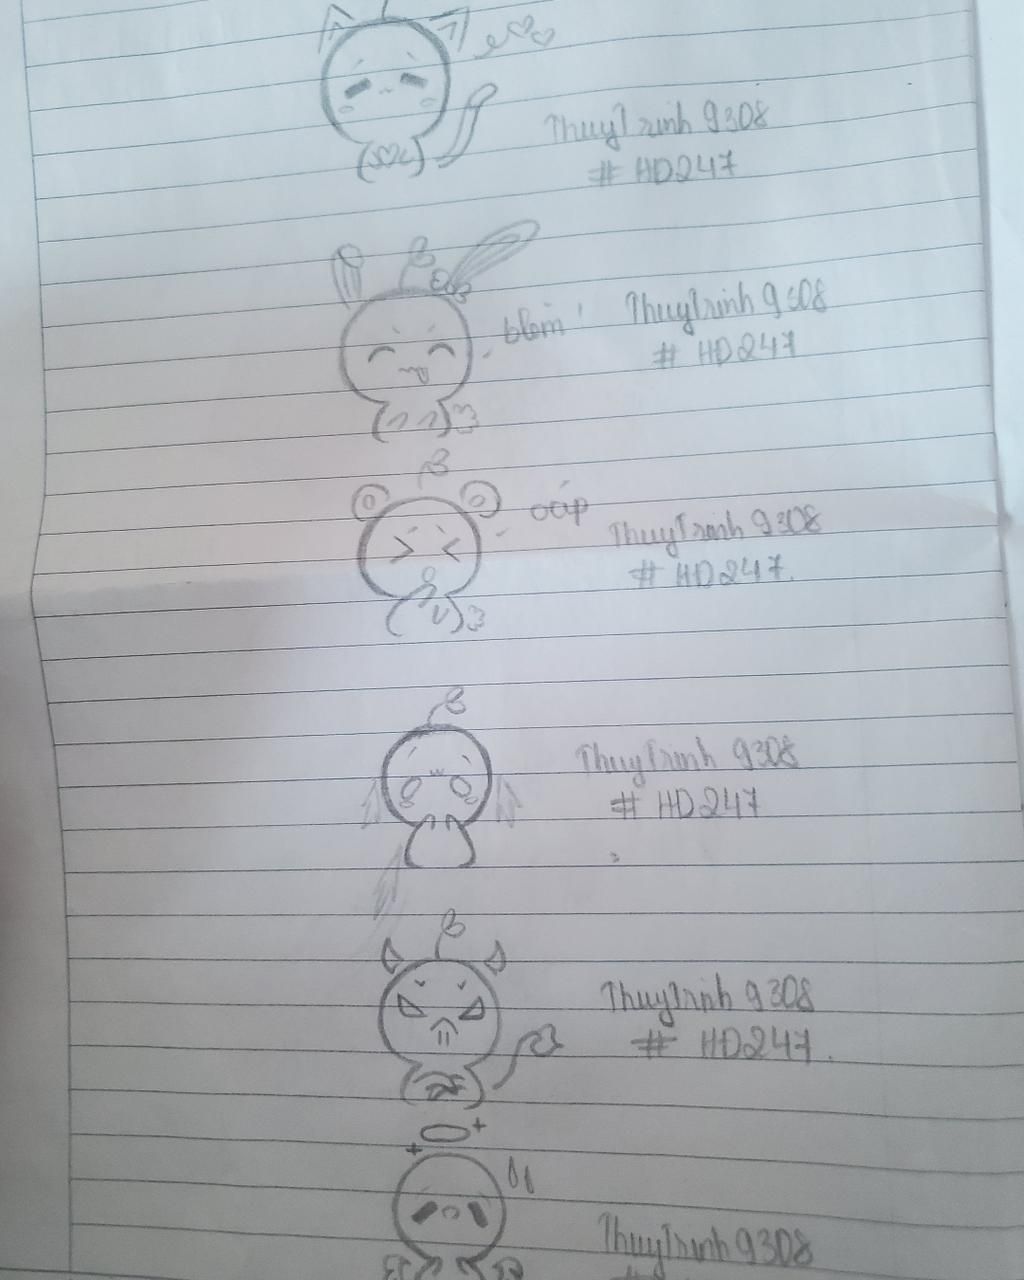 ThuyTrinh 9308
# HD247
blem
ThuyTrinh 9308
# HD247
oáp
ThuyTrinh 9308
# HD247.
ThuyTrinh 9308
# HD247
ThuyTrinh 9308
# HD247.
ThuyTrinh 9308